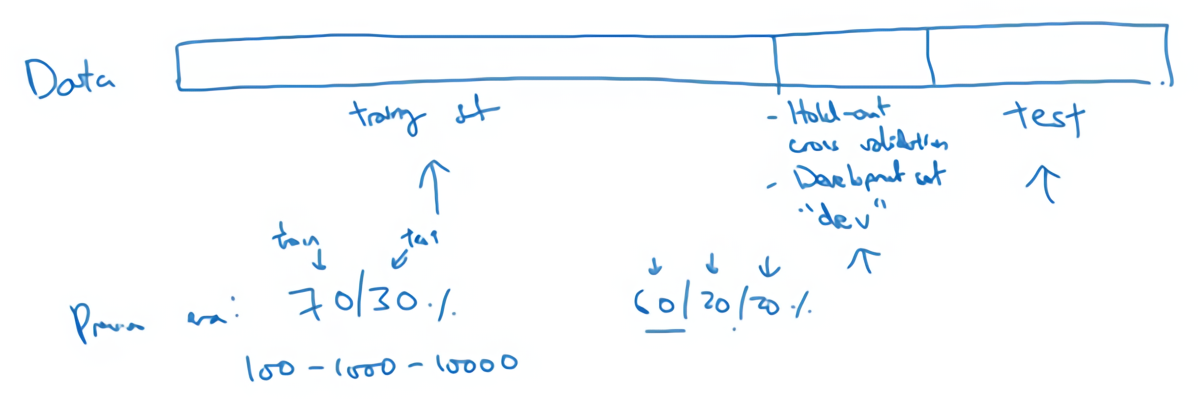 Data
training set
- Hold-out
cross validation
- Development set
"dev"
test
train
test
Previous era: 70/30 %
60/20/20 %
100 - 1000 - 10000